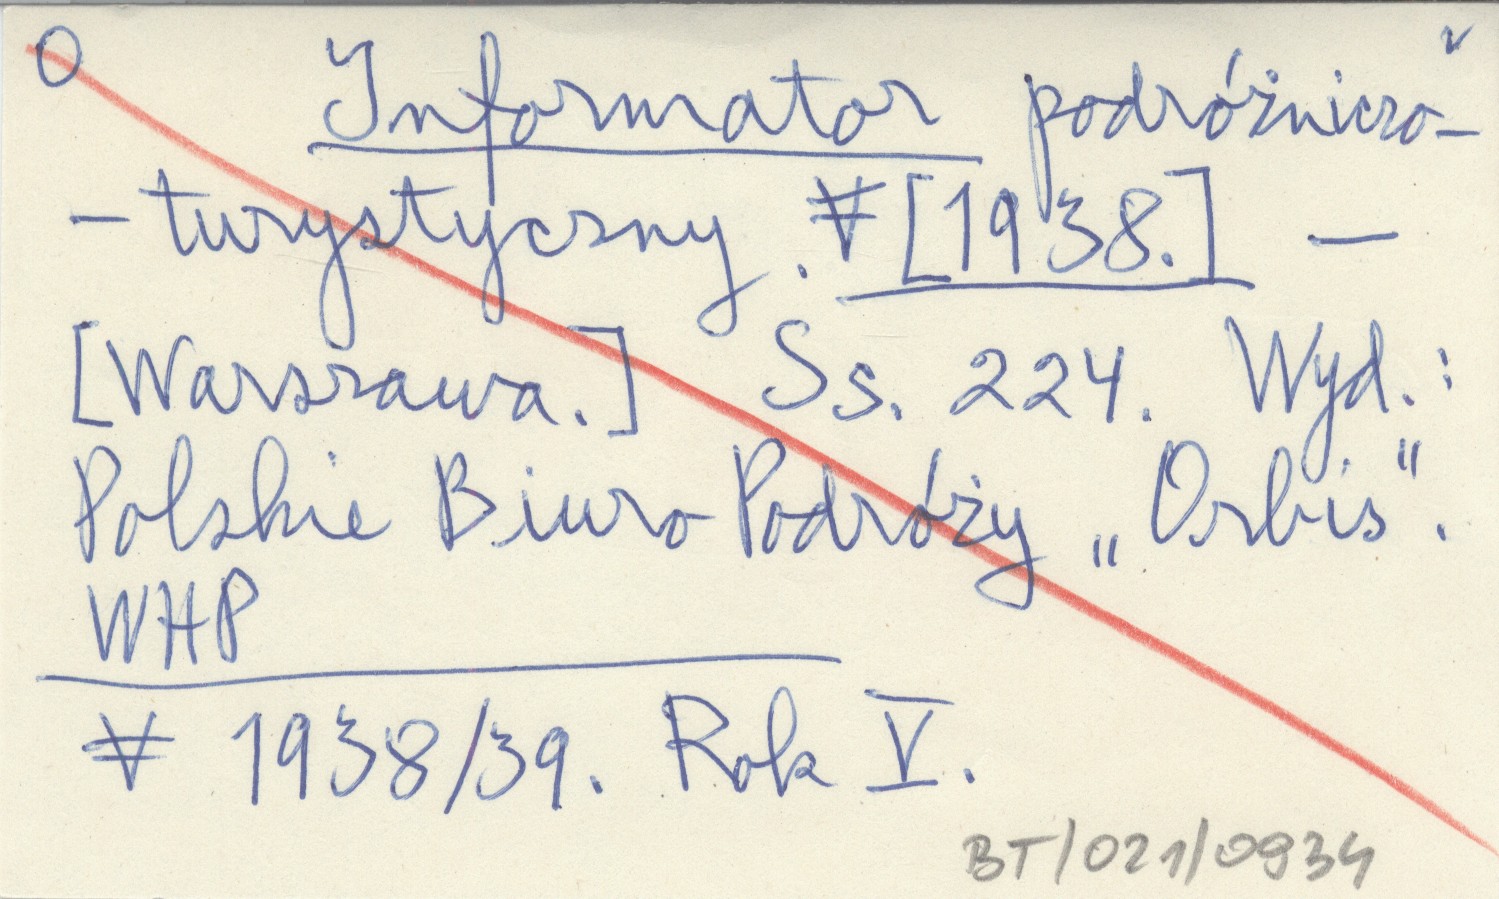 O Informator podróżniczo- v
- turystyczny. ∀ [1938.] —
[Warszawa.] Ss. 224. Wyd.:
Polskie Biuro Podróży „Orbis".
WHP
∀ 1938/39. Rok V.
BT/021/0934